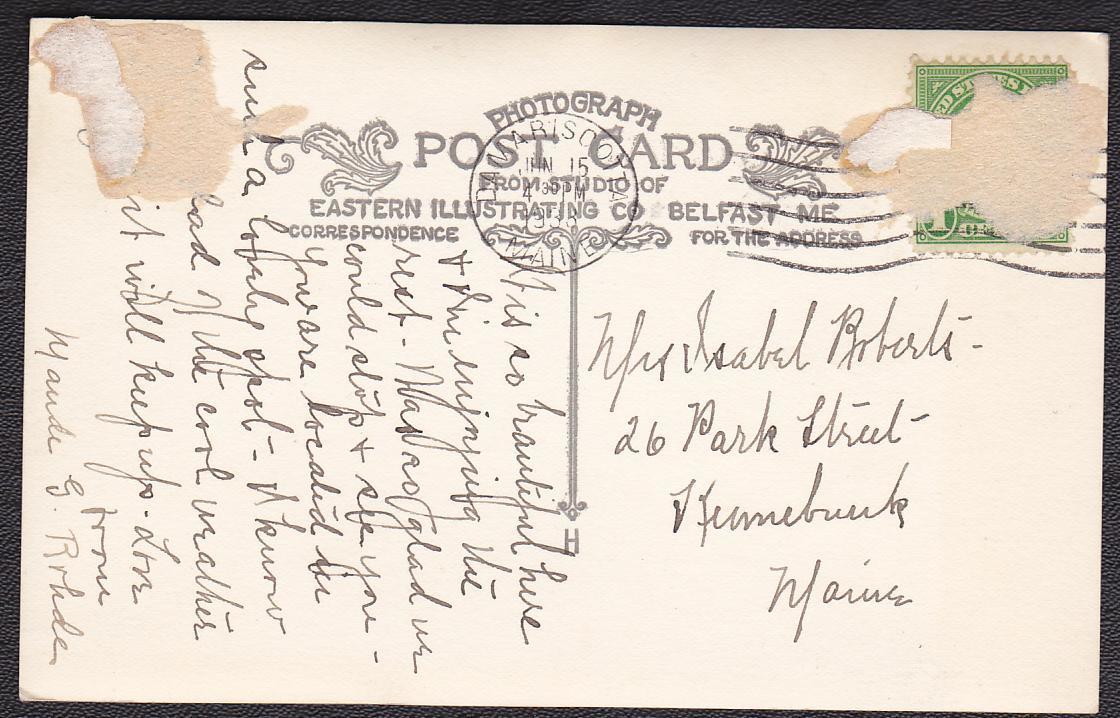 PHOTOGRAPH
POST CARD
FROM STUDIO OF
EASTERN ILLUSTRATING CO BELFAST ME
CORRESPONDENCE
FOR THE ADDRESS
DAMARISCOTTA
JUN 15
4 30 PM
MAINE
It is so beautiful here
+ I'm enjoying the
rest - Was so glad we
could stop + see you -
you are located in
such a lovely spot - I know
glad of the cool weather
it will keep up. Love
from
Maude G. Rohde
Mrs Isabel Roberts -
26 Park Street
Kennebunk
Maine
H